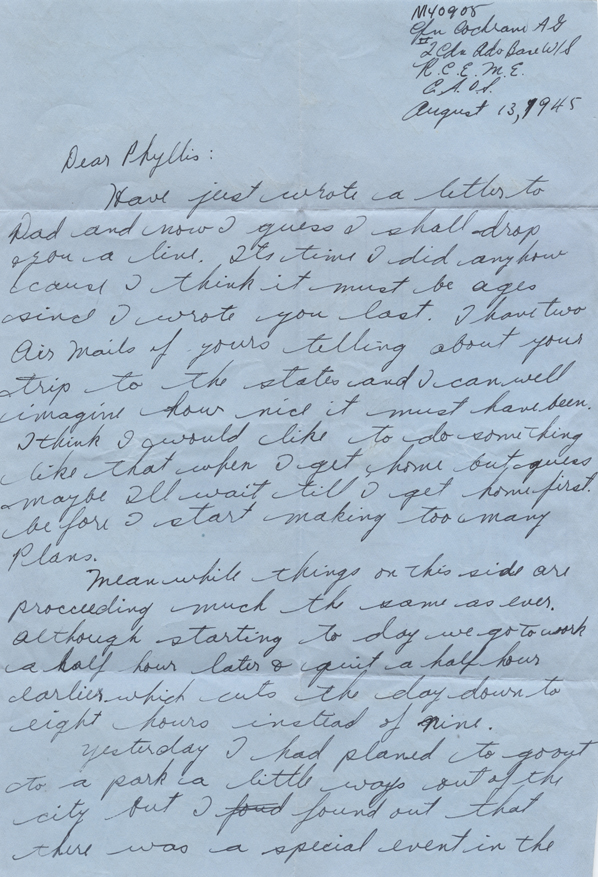 M40905
Cfn Cochram A G
2 Cdn Adv Base W/S
R.C.E.M.E.
C.A.O.S.
August 13, 1945
Dear Phyllis:
Have just wrote a letter to
Dad and now I guess I shall drop
you a line. Its time I did anyhow
cause I think it must be ages
since I wrote you last. I have two
Air Mails of yours telling about your
trip to the states and I can well
imagine how nice it must have been.
I think I would like to do something
like that when I get home but guess
maybe Ill wait till I get home first.
before I start making too many
Plans.
Meanwhile things on this side are
proceeding much the same as ever.
Although starting to day we go to work
a half hour later & quit a half hour
earlier which cuts the day down to
eight hours instead of nine.
Yesterday I had planed to go out
to a park a little ways out of the
city but I foud found out that
there was a special event in the